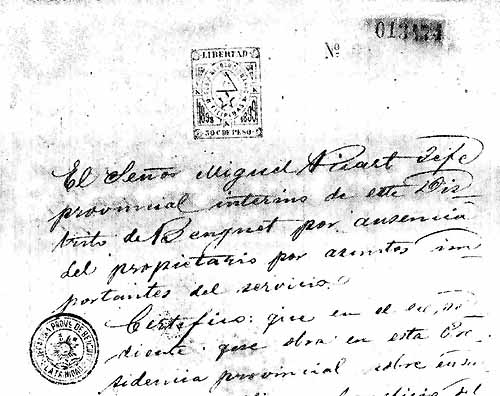 Nº 013474
LIBERTAD
1898 1899
50 C DE PESO
El Señor Miguel Picart Jefe
provincial interino de este Dis
trito de Benguet por ausencia
del propietario por asuntos im
portantes del servicio.
Certifico: que en el expe
diente que obra en esta Pre
sidencia provincial sobre
LA TRINIDAD